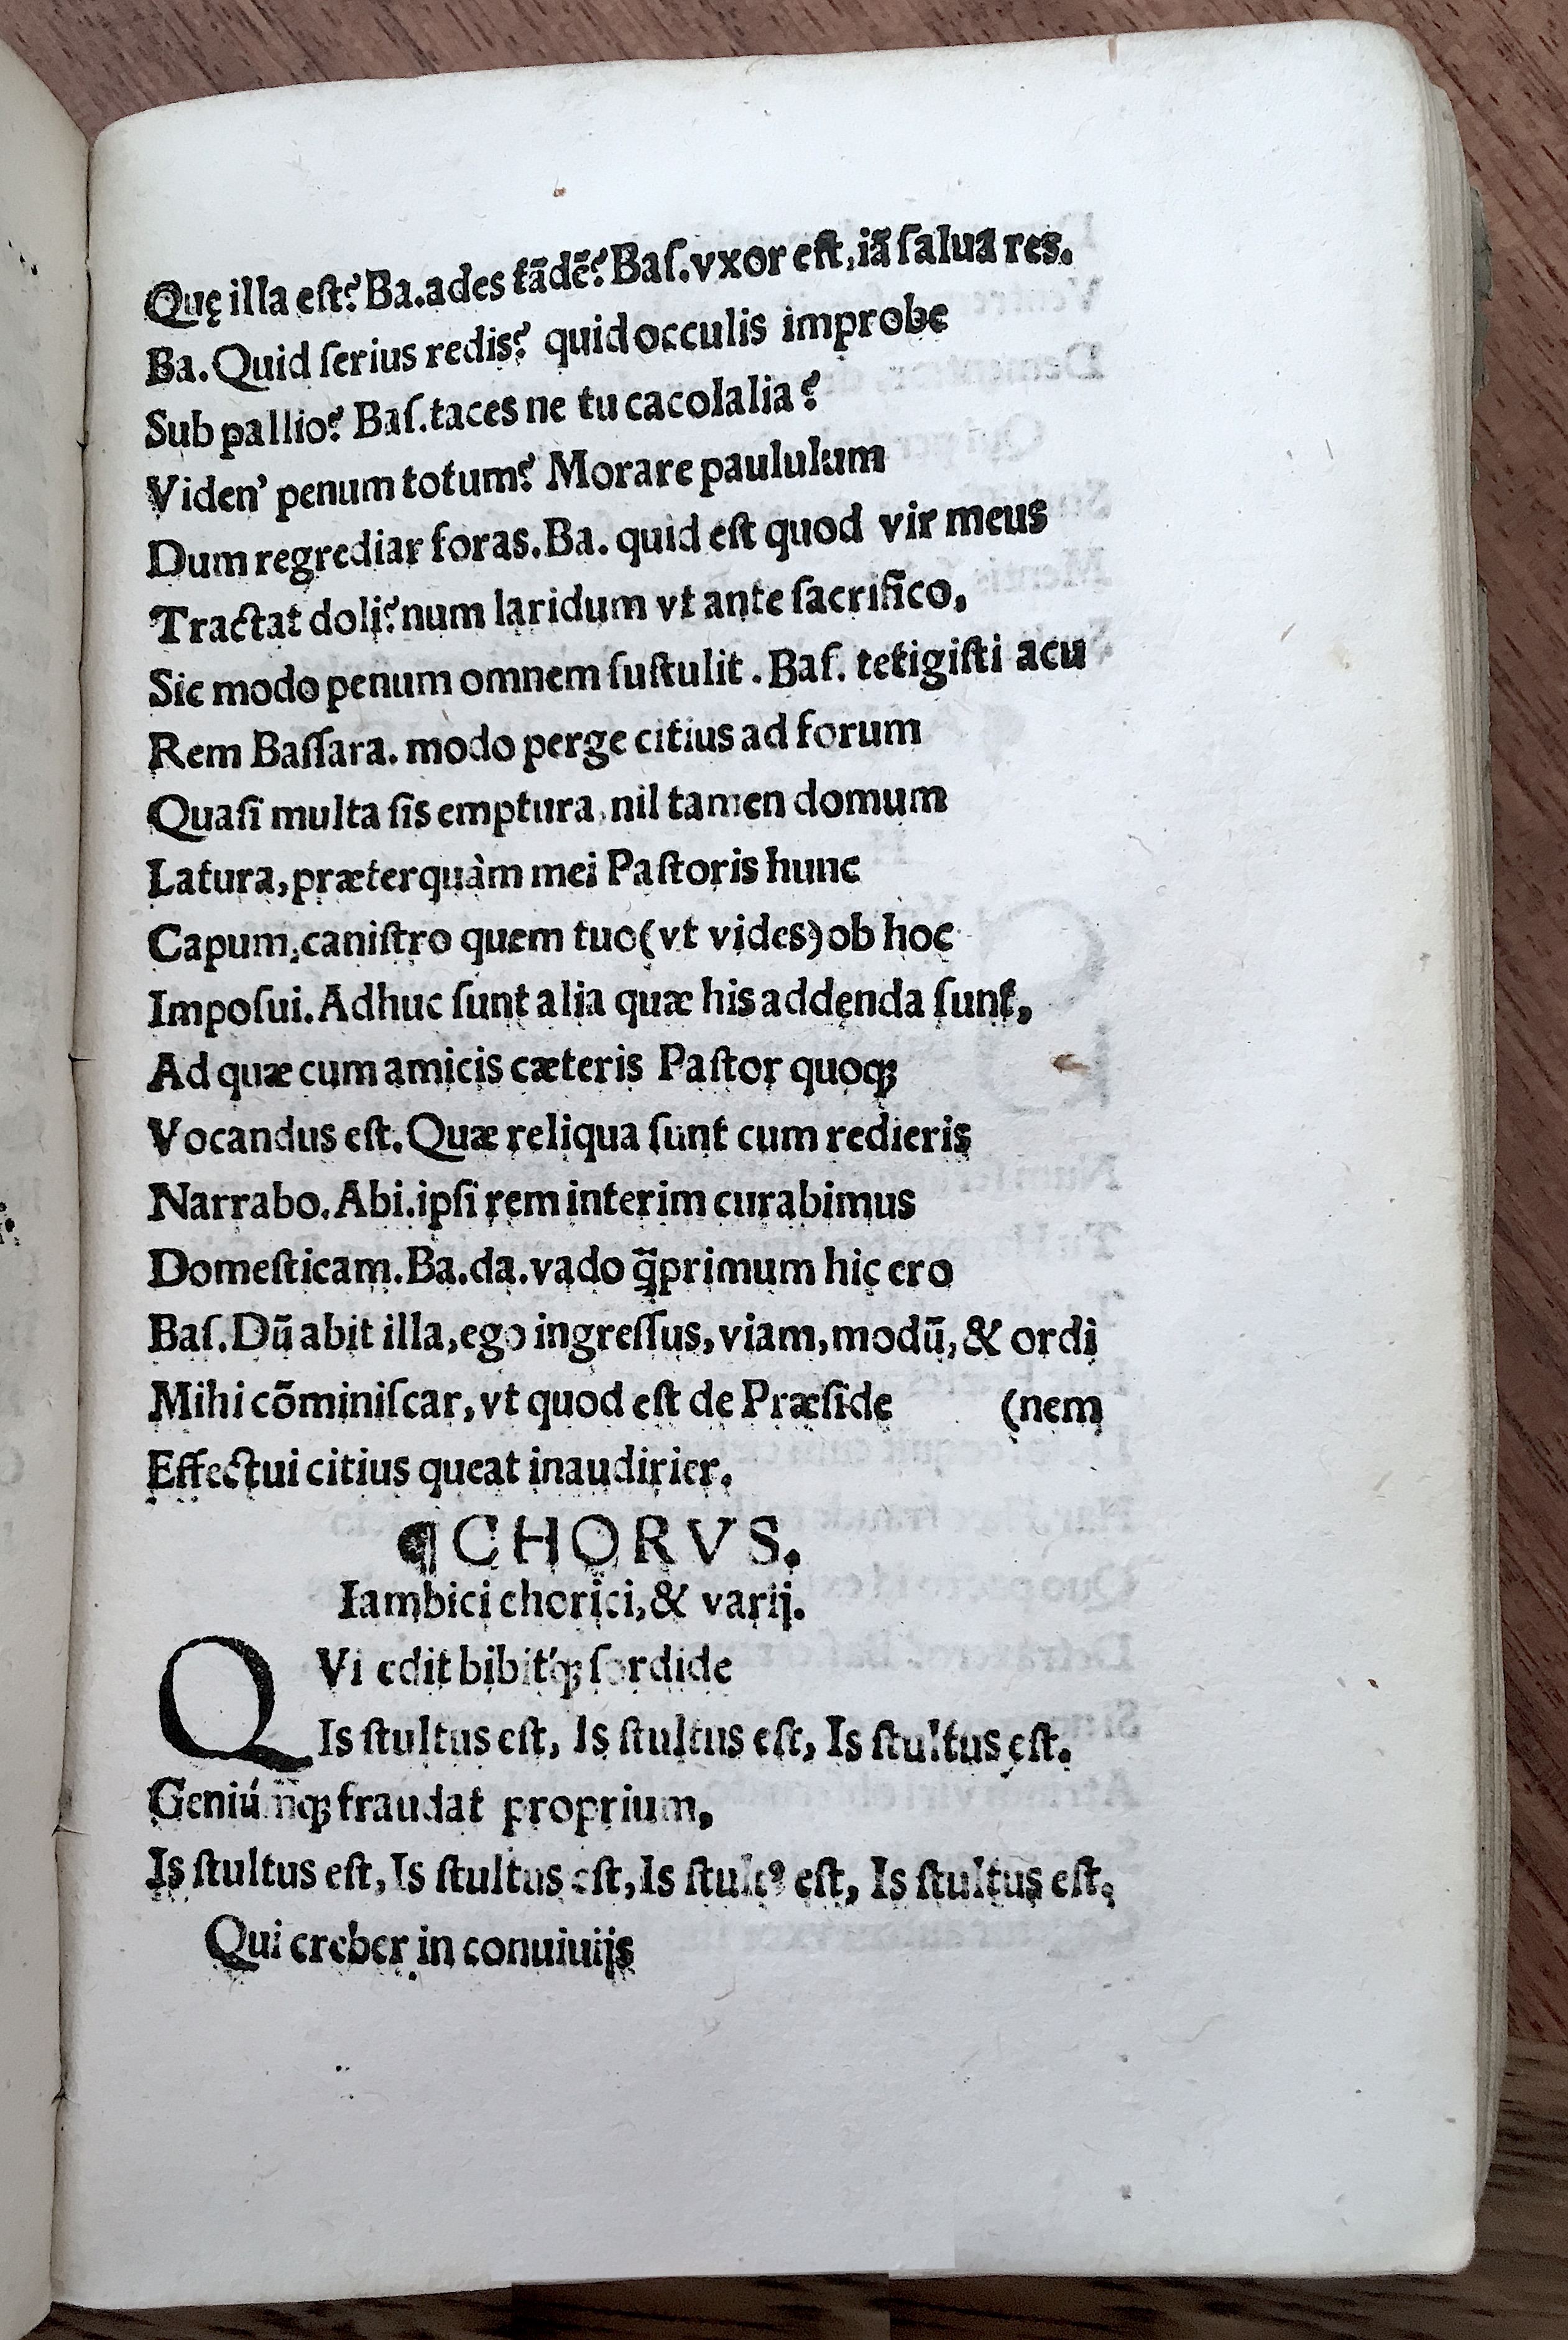 Quę illa eſt? Ba.ades tādē? Baſ.vxor eſt,iā ſalua res.
Ba. Quid ſerius redis? quid occulis improbe
Sub pallio? Baſ.taces ne tu cacolalia?
Viden' penum totum? Morare paululum
Dum regrediar foras.Ba. quid eſt quod vir meus
Tractat doli? num laridum vt ante ſacrifico,
Sic modo penum omnem ſuſtulit. Baſ. tetigiſti acu
Rem Baſſara. modo perge citius ad forum
Quaſi multa ſis emptura, nil tamen domum
Latura, præterquàm mei Paſtoris hunc
Capum, caniſtro quem tuo (vt vides) ob hoc
Impoſui. Adhuc ſunt alia quæ his addenda ſunt,
Ad quæ cum amicis cæteris Paſtor quoqꝫ
Vocandus eſt. Quæ reliqua ſunt cum redieris
Narrabo. Abi. ipſi rem interim curabimus
Domeſticam. Ba. da. vado q̄primum hic ero
Baſ. Dū abit illa, ego ingreſſus, viam, modū, & ordi
Mihi cōminiſcar, vt quod eſt de Præſide (nem
Effectui citius queat inaudirier.
¶ CHORVS.
Iambici chorici, & varij.
QVi edit bibit'qꝫ ſordide
Is ſtultus eſt, Is ſtultus eſt, Is ſtultus eſt.
Geniú nqꝫ fraudat proprium,
Is ſtultus eſt, Is ſtultus eſt, Is ſtultꝰ eſt, Is ſtultus eſt.
Qui creber in conuiuijs